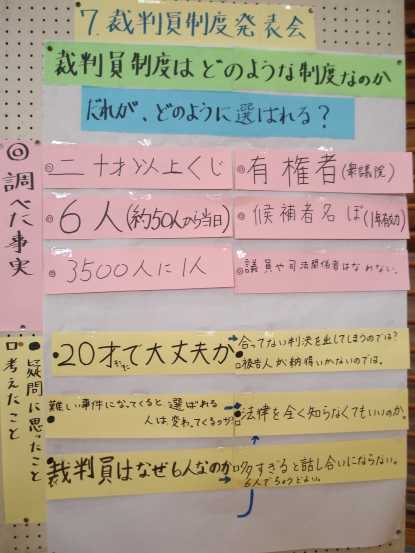 7.裁判員制度発表会
裁判員制度はどのような制度なのか
だれが、どのように選ばれる?
◎調べた事実
◎二十才以上くじ
◎有権者(衆議院)
◎6人(約50人から当日)
◎候補者名ぼ(1年有効)
◎3500人に1人
◎議員や司法関係者はなれない。
●疑問に思ったこと
□考えたこと
●20才で大丈夫か
→合ってない判決を出してしまうのでは?
□被告人が納得いかないのでは。
●難しい事件になってくると、選ばれる
人は、変わってくるのか
→●法律を全く知らなくてもいいのか。
●裁判員はなぜ6人なのか
→□多すぎると話し合いにならない。
6人でちょうどよい。